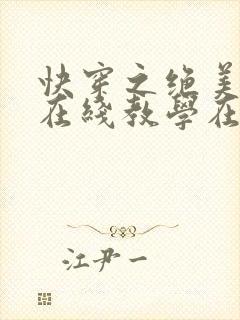 快穿之绝美
在线教学在
江尹一